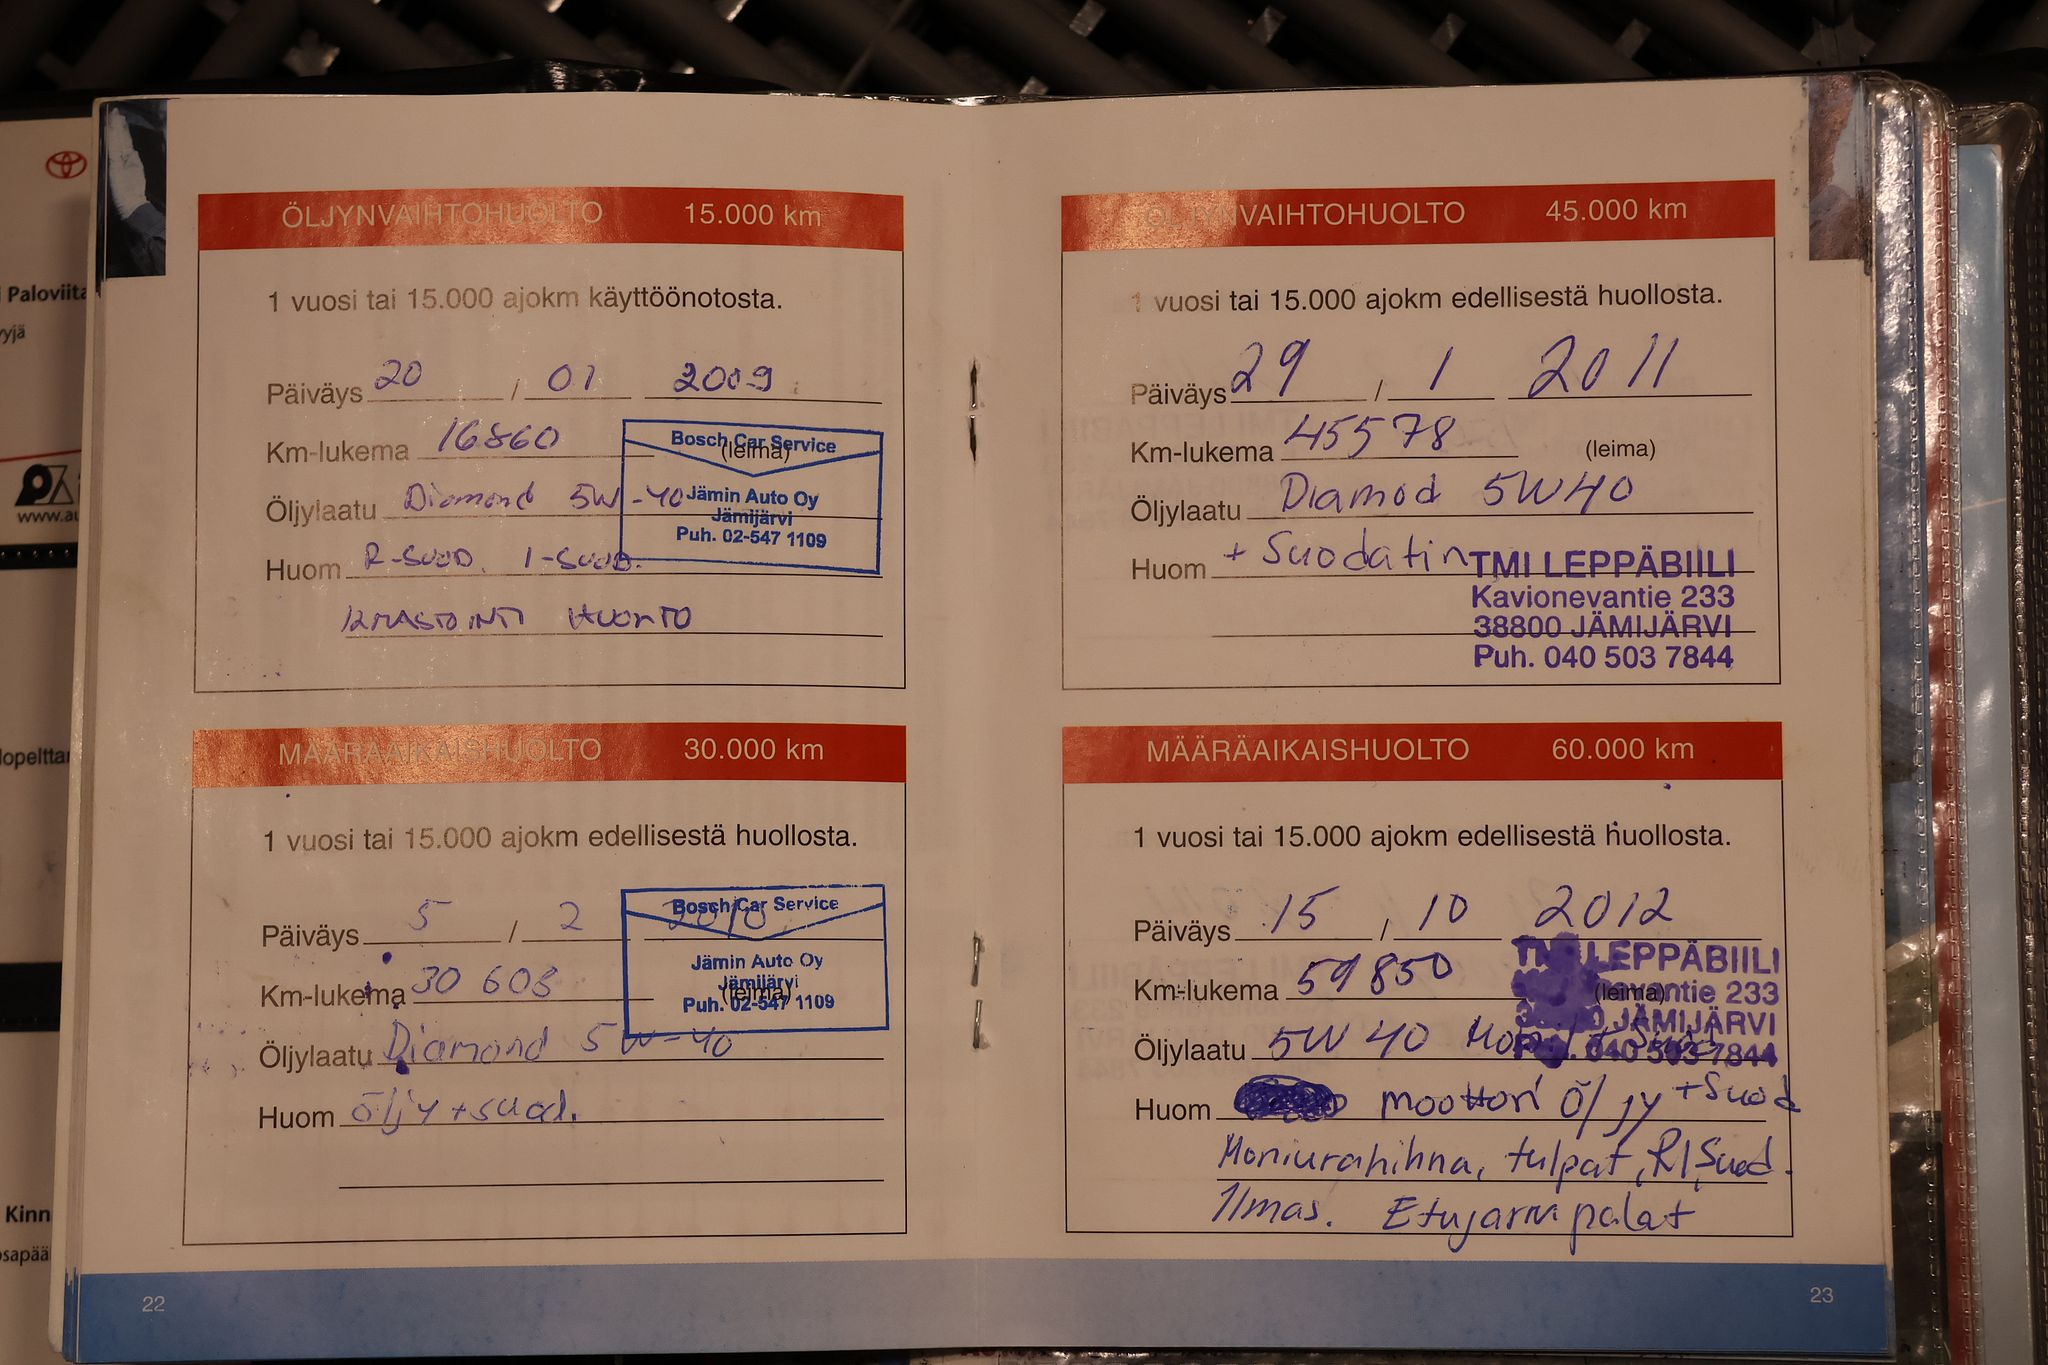 Paloviita
yyjä
www.au
lopelttar
Kinn
osapää
ÖLJYNVAIHTOHUOLTO 15.000 km
1 vuosi tai 15.000 ajokm käyttöönotosta.
Päiväys 20 / 01 2009
Km-lukema 16860
Bosch Car Service
(leima)
Öljylaatu Diamond 5W-40
Jämin Auto Oy
Jämijärvi
Puh. 02-547 1109
Huom R-SUOD. I-SUOD.
ILMASTOINTI HUOLTO
MÄÄRÄAIKAISHUOLTO 30.000 km
1 vuosi tai 15.000 ajokm edellisestä huollosta.
Päiväys 5 / 2 2010
Bosch Car Service
Km-lukema 30 603
Jämin Auto Oy
Jämijärvi
(leima)
Puh. 02-547 1109
Öljylaatu Diamond 5W-40
Huom öljy + suod.
22
ÖLJYNVAIHTOHUOLTO 45.000 km
1 vuosi tai 15.000 ajokm edellisestä huollosta.
Päiväys 29 / 1 2011
Km-lukema 45578 (leima)
Öljylaatu Diamod 5W40
Huom + Suodatin
TMI LEPPÄBIILI
Kavionevantie 233
38800 JÄMIJÄRVI
Puh. 040 503 7844
MÄÄRÄAIKAISHUOLTO 60.000 km
1 vuosi tai 15.000 ajokm edellisestä huollosta.
Päiväys 15 / 10 2012
TMI LEPPÄBIILI
Km-lukema 59850 (leima)
vantie 233
JÄMIJÄRVI
Öljylaatu 5W40
040 503 7844
Huom moottori öljy + Suod
Moniurahihna, tulpat, R/Suod.
Ilmas. Etujarrupalat
23